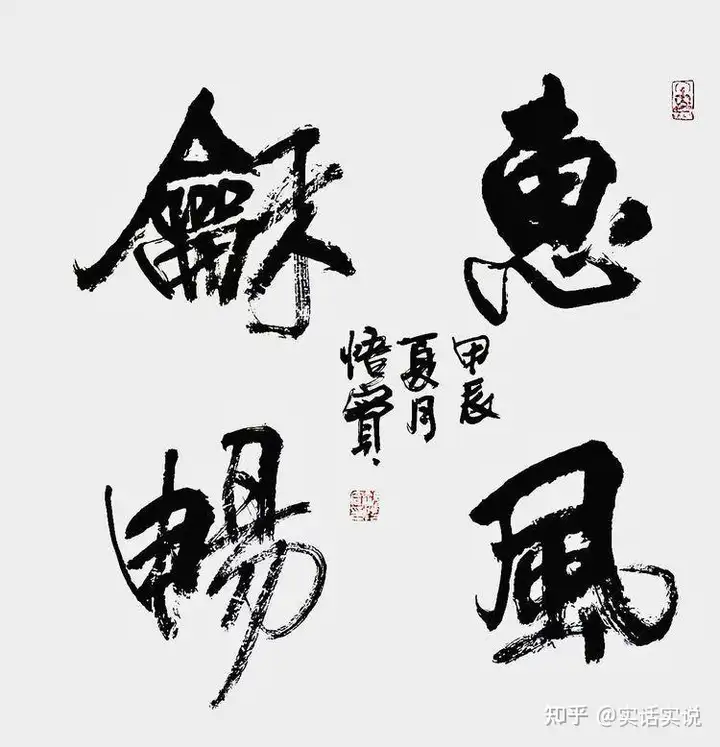 惠風
龢暢
甲辰
夏月
悟實
知乎 @实话实说